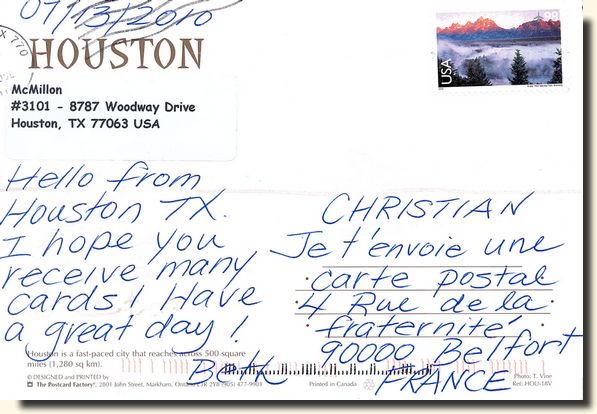 07/13/2010
HOUSTON
McMillon
#3101 - 8787 Woodway Drive
Houston, TX 77063 USA
98
USA
Hello from
Houston TX.
I hope you
receive many
cards! Have
a great day!
Beth
CHRISTIAN
Je t'envoie une
carte postal
4 Rue de la
fraternité
90000 Belfort
FRANCE
Houston is a fast-paced city that reaches across 500 square
miles (1,280 sq km).
© DESIGNED and PRINTED by
The Postcard Factory® 2801 John Street, Markham, Ontario L3R 2Y8 (905) 477-9901
Printed in Canada
Photo: T. Vine
Ref: HOU-18V